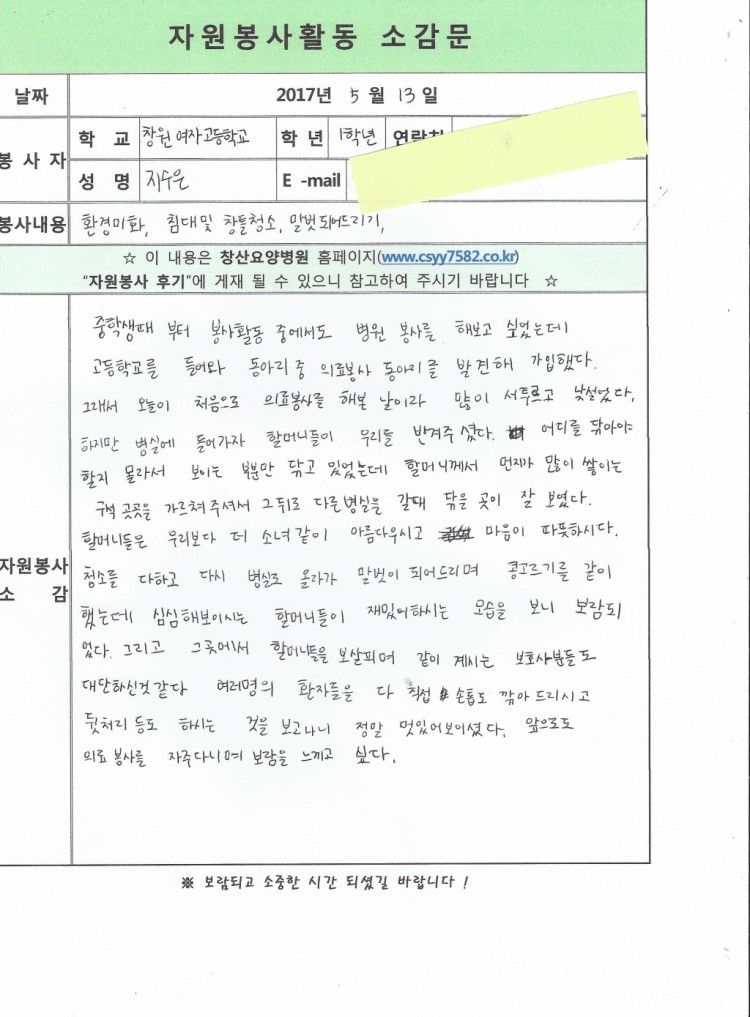 자원봉사활동 소감문
날짜 2017년 5 월 13 일
봉사자 학 교 창원 여자고등학교 학 년 1학년 연락처
성 명 지수은 E -mail
봉사내용 환경미화, 침대및 창틀청소, 말벗되어드리기,
☆ 이 내용은 창산요양병원 홈페이지(www.csyy7582.co.kr)
"자원봉사 후기"에 게재 될 수 있으니 참고하여 주시기 바랍니다 ☆
자원봉사
소 감
중학생때 부터 봉사활동 중에서도 병원 봉사를 해보고 싶었는데
고등학교를 들어와 동아리 중 의료봉사 동아리를 발견해 가입했다.
그래서 오늘이 처음으로 의료봉사를 해본 날이라 많이 서투르고 낯설었다.
하지만 병실에 들어가자 할머니들이 우리들 반겨주셨다. 어디를 닦아야
할지 몰라서 보이는 부분만 닦고 있었는데 할머니께서 먼지가 많이 쌓이는
구석 곳곳을 가르쳐주셔서 그뒤로 다른병실을 갈때 닦을 곳이 잘 보였다.
할머니들은 우리보다 더 소녀같이 아름다우시고 마음이 따뜻하시다.
청소를 다하고 다시 병실로 올라가 말벗이 되어드리며 콩고르기를 같이
했는데 심심해보이시는 할머니들이 재밌어하시는 모습을 보니 보람되
었다. 그리고 그곳에서 할머니들을 보살피며 같이 계시는 보호사분들도
대단하신것같다 여러명의 환자들을 다 직접 손톱도 깎아 드리시고
뒷처리 등도 하시는 것을 보고나니 정말 멋있어보이셨다. 앞으로도
의료 봉사를 자주다니며 보람을 느끼고 싶다.
※ 보람되고 소중한 시간 되셨길 바랍니다 !